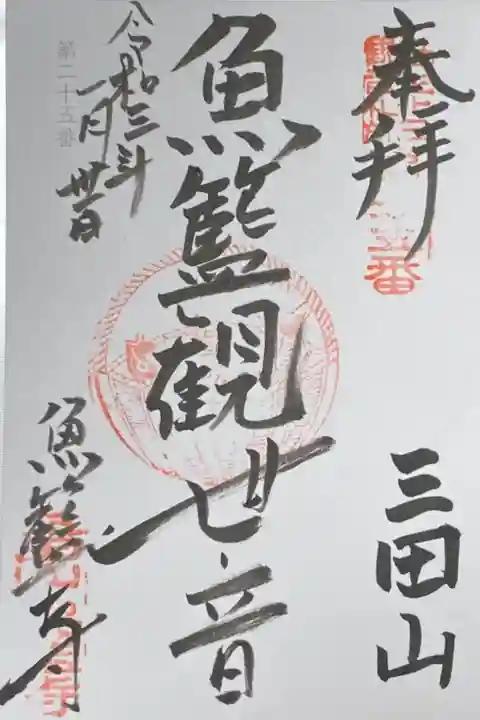 奉拝
三田山
魚籃観世音
令和三年
一月廿一日
第二十五番
魚籃寺